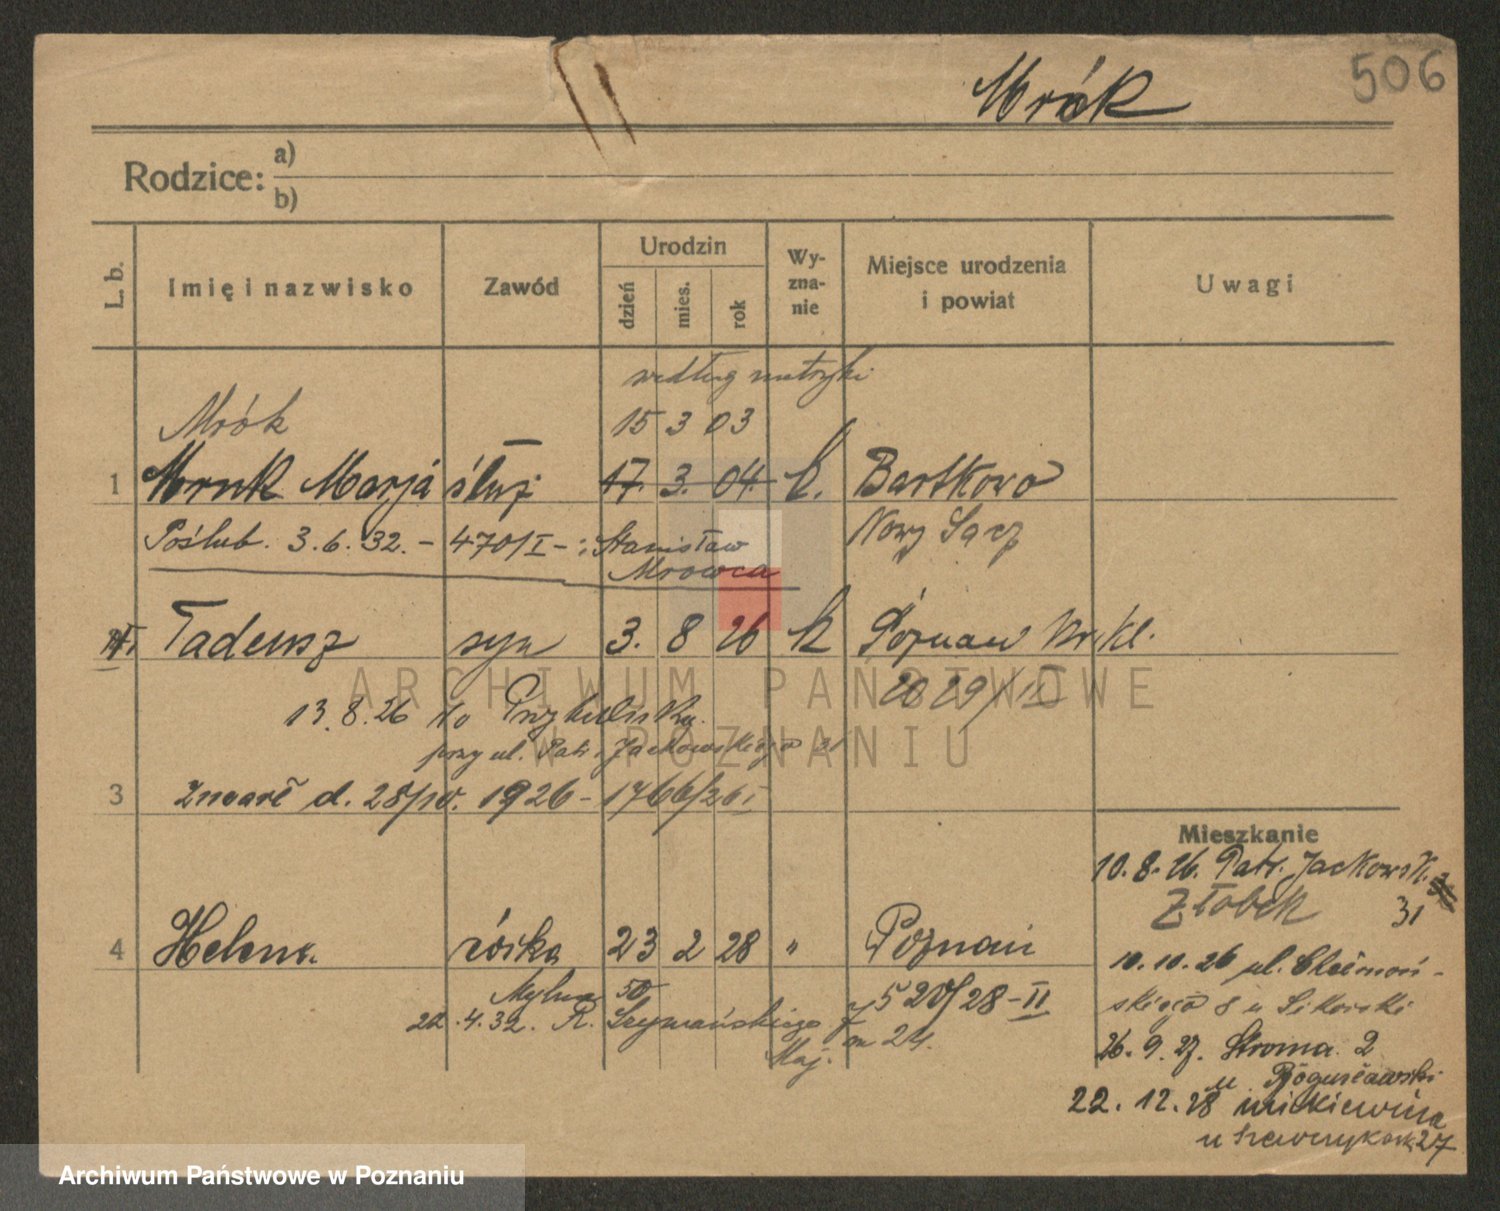 506
Mrók
Rodzice: a)
b)
L. b.
Imię i nazwisko
Zawód
Urodzin
dzień
mies.
rok
Wy-
zna-
nie
Miejsce urodzenia
i powiat
Uwagi
według metryki
Mrók 15 3 03
1 Mruk Marja służ. 17. 3. 04. k. Bartkowo
Poślub. 3.6.32. – 470/I – : Stanisław Nowy Sącz
Mrowca
Tadeusz syn 3. 8 26 k Poznań Kr. Kl.
2029/II
13.8.26 do Przytuliska
przy ul. Patr. Jackowskiego 31
3 Zmarł d. 28/10. 1926 – 1766/26 I
Mieszkanie
10.8.26. Patr. Jackowsk.
Żłobek 31
4 Helena córka 23 2 28 " Poznań
10.10.26 ul. Chełmoń-
skiego 8 u Sikorski
Mylna 50 520/28–II
22.4.32. R. Szymańskiego 7
m 24.
26.9.27. Stroma 2
u Bogusławski
22.12.28 Mickiewicza
u Szewczykowsk. 27
ARCHIWUM PAŃSTWOWE
W POZNANIU
Archiwum Państwowe w Poznaniu